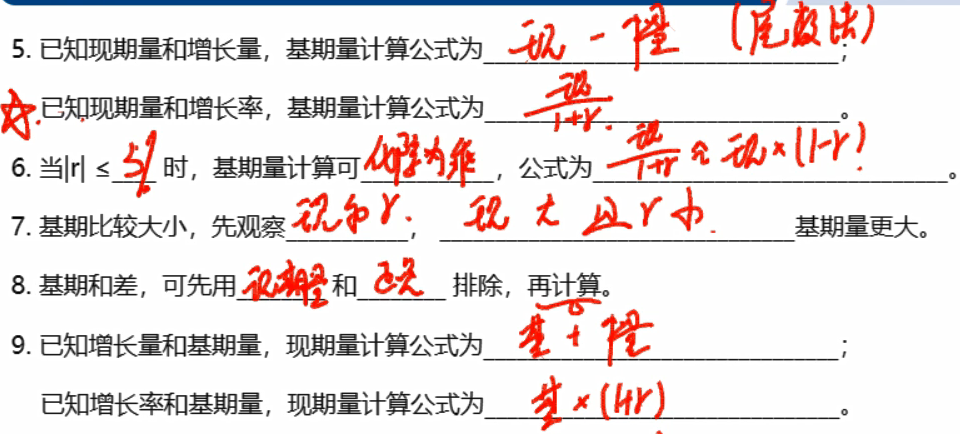 5. 已知现期量和增长量，基期量计算公式为 现 - 增量 (尾数法) ；
☆ 已知现期量和增长率，基期量计算公式为 现/1+r 。
6. 当|r| ≤ 5% 时，基期量计算可 化除为乘 ，公式为 现/1+r ≈ 现×(1-r) 。
7. 基期比较大小，先观察 现和r ， 现大且r小 基期量更大。
8. 基期和差，可先用 现期量 和 排除，再计算。
9. 已知增长量和基期量，现期量计算公式为 基 + 增量 ；
已知增长率和基期量，现期量计算公式为 基 × (1+r) 。